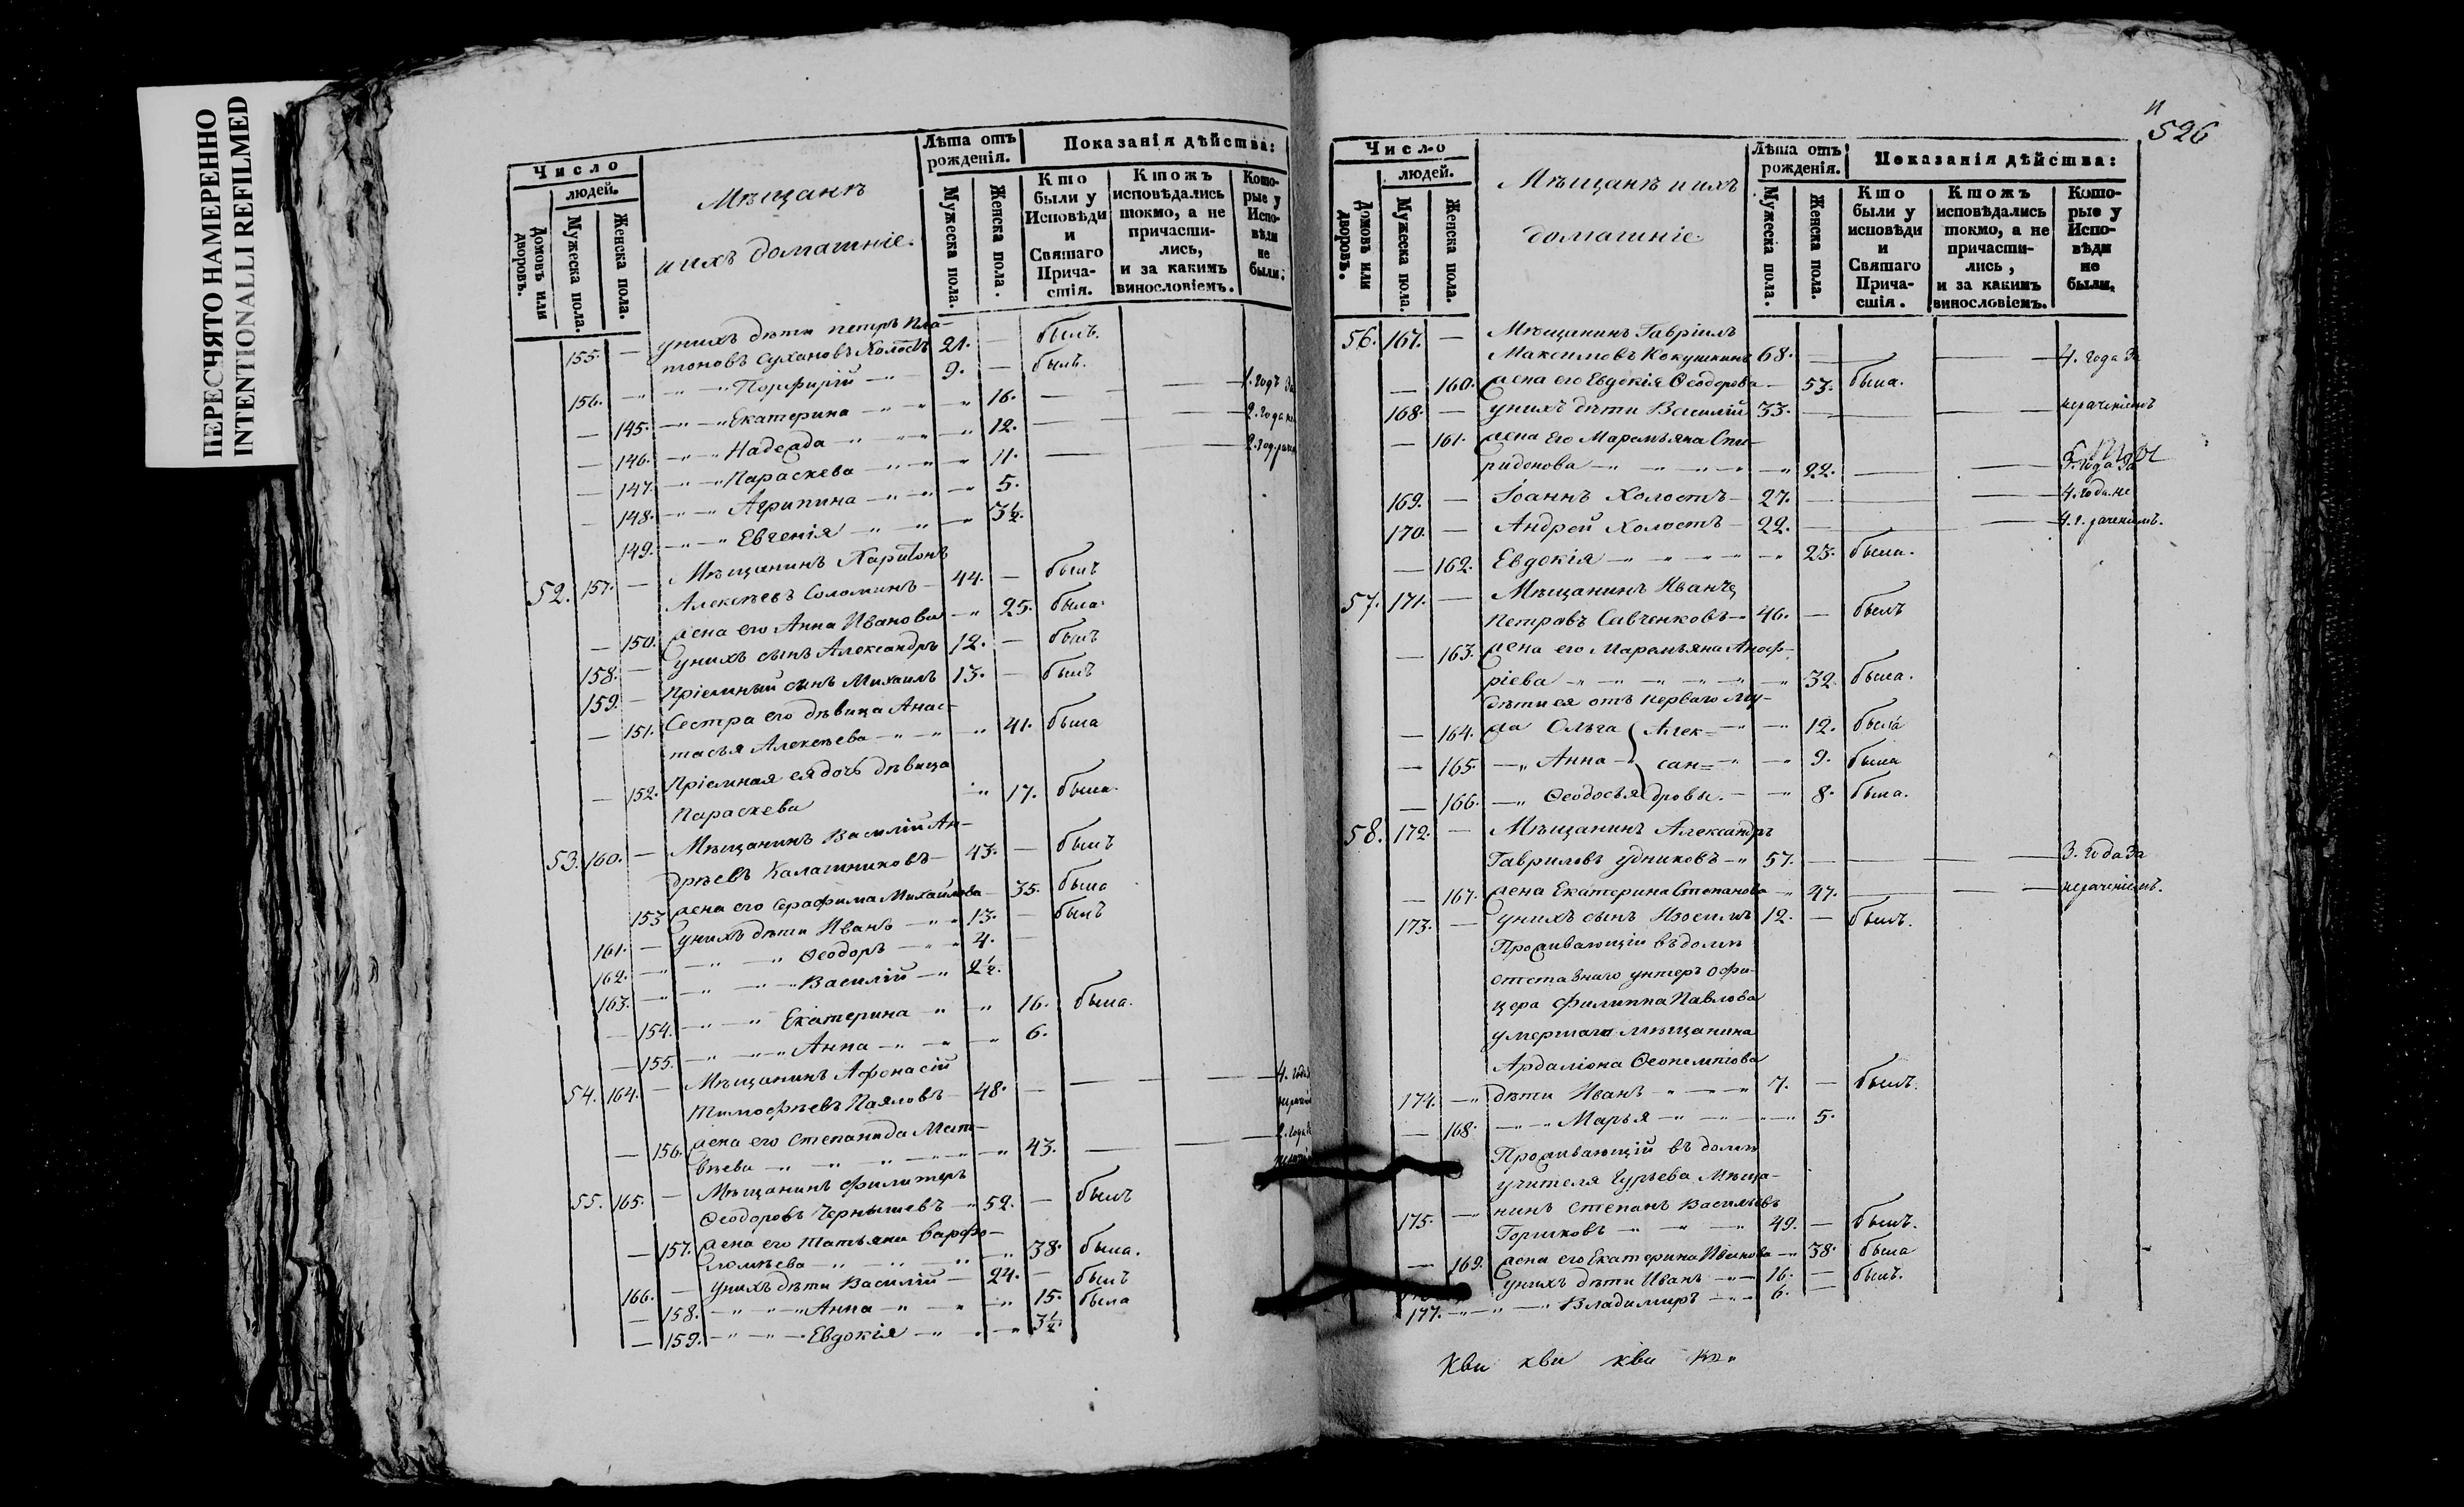 ПЕРЕСНЯТО НАМЕРЕННО
INTENTIONALLI REFILMED
Число
людей.
Домовъ или дворовъ.
Мужеска пола.
Женска пола.
Мѣщанъ
и ихъ домашніе.
Лѣта отъ рожденія.
Мужеска пола.
Женска пола.
Показанія дѣйства:
Кто были у Исповѣди и Святаго Причастія.
Ктожъ исповѣдались токмо, а не причастились, и за какимъ винословіемъ.
Которые у Исповѣди не были.
155. — у нихъ дѣти Петръ Пла-
тоновъ Сухановъ Холостъ 21. — былъ.
156. — " — " Порфирій — " 9. — былъ.
— 145. — " — " Екатерина — " — " 16. — — 1. годъ за
— 146. — " — " Надежда — " — " 12. — — 2. года не
— 147. — " — " Параскева — " — " 11. — — 2. год.
— 148. — " — " Агрипина — " — " 5.
149. — " — " Евгенія — " — " 3½.
52. 157. — Мѣщанинъ Харитонъ
Алексѣевъ Соломинъ — 44. — былъ
— 150. жена его Анна Иванова — " 25. была.
158. — у нихъ сынъ Александръ 12. — былъ
159. — Пріемный сынъ Михаилъ 13. — былъ
— 151. Сестра его дѣвица Анас-
тасья Алексѣева — " — " 41. была
— 152. Пріемная ея дочь дѣвица
Параскева — " 17. была.
53. 160. — Мѣщанинъ Василій Ан-
дрѣевъ Калашниковъ — 43. — былъ
153 жена его Серафима Михайлова — 35. была
161. — у нихъ дѣти Иванъ — " 13. — былъ
162. — " — " Ѳеодоръ — " 4. —
163. — " — " Василій — " 2½.
— 154. — " — " Екатерина " — " 16. была.
— 155. — " — " Анна — " — " 6.
54. 164. — Мѣщанинъ Афонасій
Тимофѣевъ Паяловъ — 48. — — — 4. года
— 156. жена его Степанида Мат-
вѣева — " — " 43. — — 2. года
55. 165. — Мѣщанинъ Филитеръ
Ѳеодоровъ Чернышевъ — " 52. — былъ
— 157. жена его Татьяна Варфо-
ломѣева — " — " 38. была.
166. — у нихъ дѣти Василій — 24. — былъ
— 158. — " — " Анна — " — " 15. была
— 159. — " — " Евдокія — " — " 3½.
526
Число
людей.
Домовъ или дворовъ.
Мужеска пола.
Женска пола.
Мѣщанъ и ихъ
домашніе
Лѣта отъ рожденія.
Мужеска пола.
Женска пола.
Показанія дѣйства:
Кто были у исповѣди и Святаго Причастія.
Ктожъ исповѣдались токмо, а не причастились, и за какимъ винословіемъ.
Которые у Исповѣди не были.
56. 167. — Мѣщанинъ Гавріилъ
Максимовъ Кокушкинъ 68. — — — 4. года За
— 160. жена его Евдокія Ѳеодорова — 53. была.
168. — у нихъ дѣти Василій 33. — — — нераченіемъ
— 161. жена его Маремьяна Спи-
ридонова — " — " 22. — — 3. года За
169. — Іоаннъ Холостъ — 27. — — 4. года. не
170. — Андрей Холостъ — 22. — — 4. г. раченіемъ.
— 162. Евдокія — " — " 25. была.
57. 171. — Мѣщанинъ Иванъ
Петровъ Савченковъ — 46. — былъ
— 163. жена его Маремьяна Аноф-
ріева — " — " 32. была.
дѣти ея отъ перваго му-
— 164. жа Ольга Алек= — " 12. была
— 165. — " Анна — сан= — " 9. была
— 166. — " Ѳеодосья дровы. — " 8. была.
58. 172. — Мѣщанинъ Александръ
Гавриловъ Удниковъ — " 57. — — — 3. года За
— 167. жена Екатерина Степанова — " 47. — — нераченіемъ.
173. — у нихъ сынъ Изосимъ 12. — былъ.
Проживающіи въ домѣ
отставнаго унтеръ офи-
цера Филиппа Павлова
умершаго мѣщанина
Ардаліона Ѳеопемптова
174. — " дѣти Иванъ — " 7. — былъ.
— 168. — " — " Марья — " — " 5.
Проживающій въ домѣ
учителя Гурьева Мѣща-
175. — нинъ Степанъ Васильевъ
Горшковъ — " — " 49. — былъ.
— 169. жена его Екатерина Иванова — " 38. была
у нихъ дѣти Иванъ — " 16. — былъ.
177. — " — " Владимиръ — " 6. —
Кви кви кви